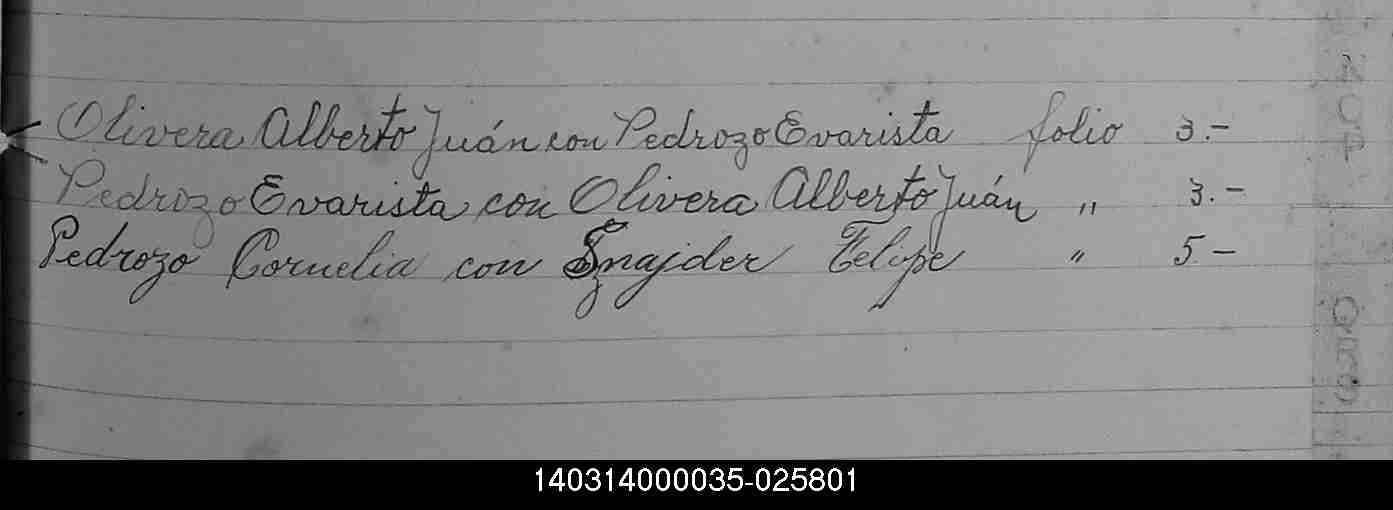 Olivera Alberto Juán con Pedrozo Evarista folio 3.-
Pedrozo Evarista con Olivera Alberto Juán " 3.-
Pedrozo Cornelia con Sznajder Felipe " 5-
140314000035-025801